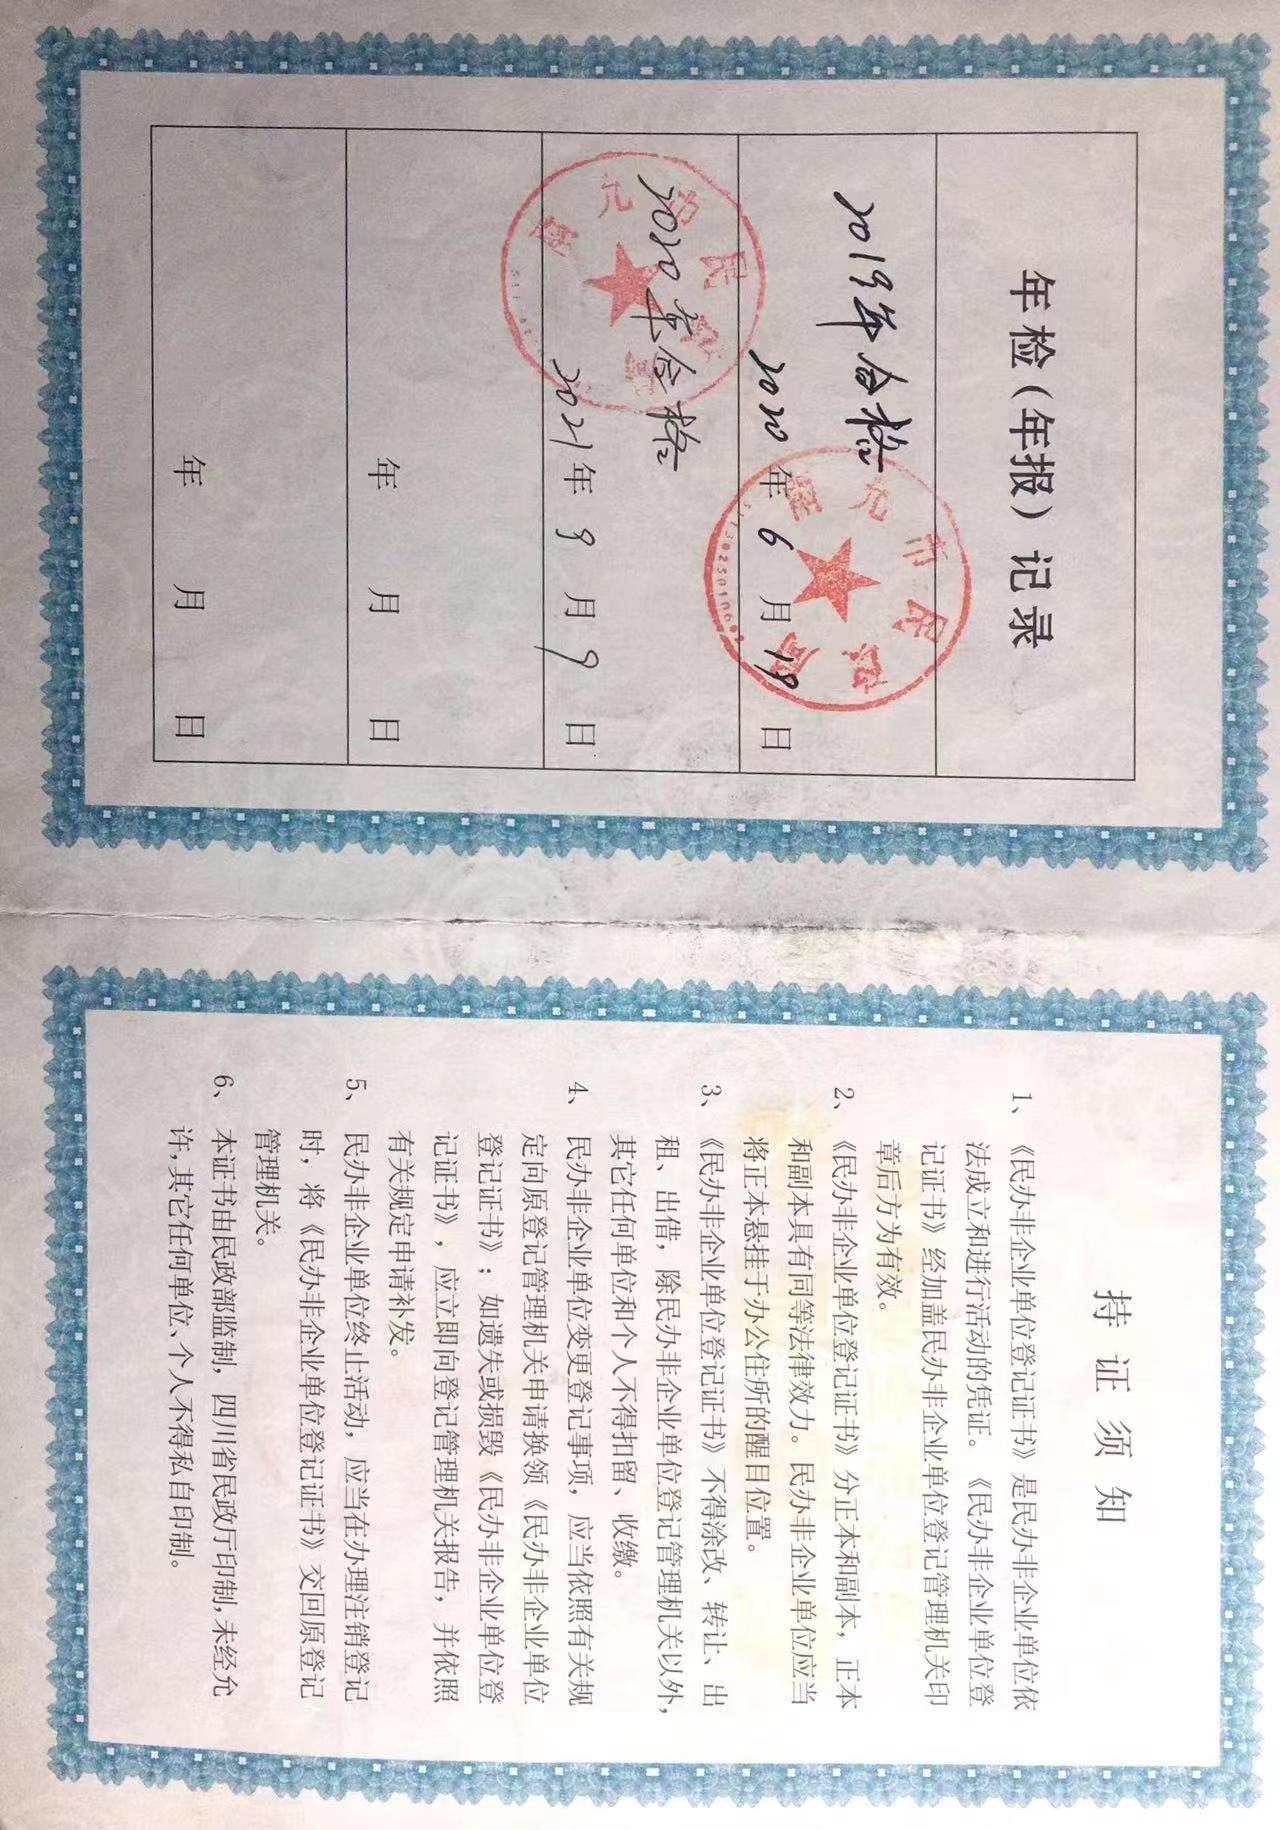 年检（年报）记录
2019年合格
2020年6月19日
广元市民政局
2020年合格
2021年9月9日
广元市民政局
年 月 日
年 月 日
持证须知
1、《民办非企业单位登记证书》是民办非企业单位依
法成立和进行活动的凭证。《民办非企业单位登
记证书》经加盖民办非企业单位登记管理机关印
章后方为有效。
2、《民办非企业单位登记证书》分正本和副本，正本
和副本具有同等法律效力。民办非企业单位应当
将正本悬挂于办公住所的醒目位置。
3、《民办非企业单位登记证书》不得涂改、转让、出
租、出借，除民办非企业单位登记管理机关以外，
其它任何单位和个人不得扣留、收缴。
4、民办非企业单位变更登记事项，应当依照有关规
定向原登记管理机关申请换领《民办非企业单位
登记证书》；如遗失或损毁《民办非企业单位登
记证书》，应立即向登记管理机关报告，并依照
有关规定申请补发。
5、民办非企业单位终止活动，应当在办理注销登记
时，将《民办非企业单位登记证书》交回原登记
管理机关。
6、本证书由民政部监制，四川省民政厅印制，未经允
许，其它任何单位、个人不得私自印制。